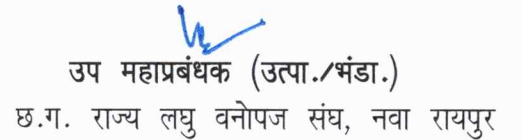 उप महाप्रबंधक (उत्पा./भंडा.)
छ.ग. राज्य लघु वनोपज संघ, नवा रायपुर